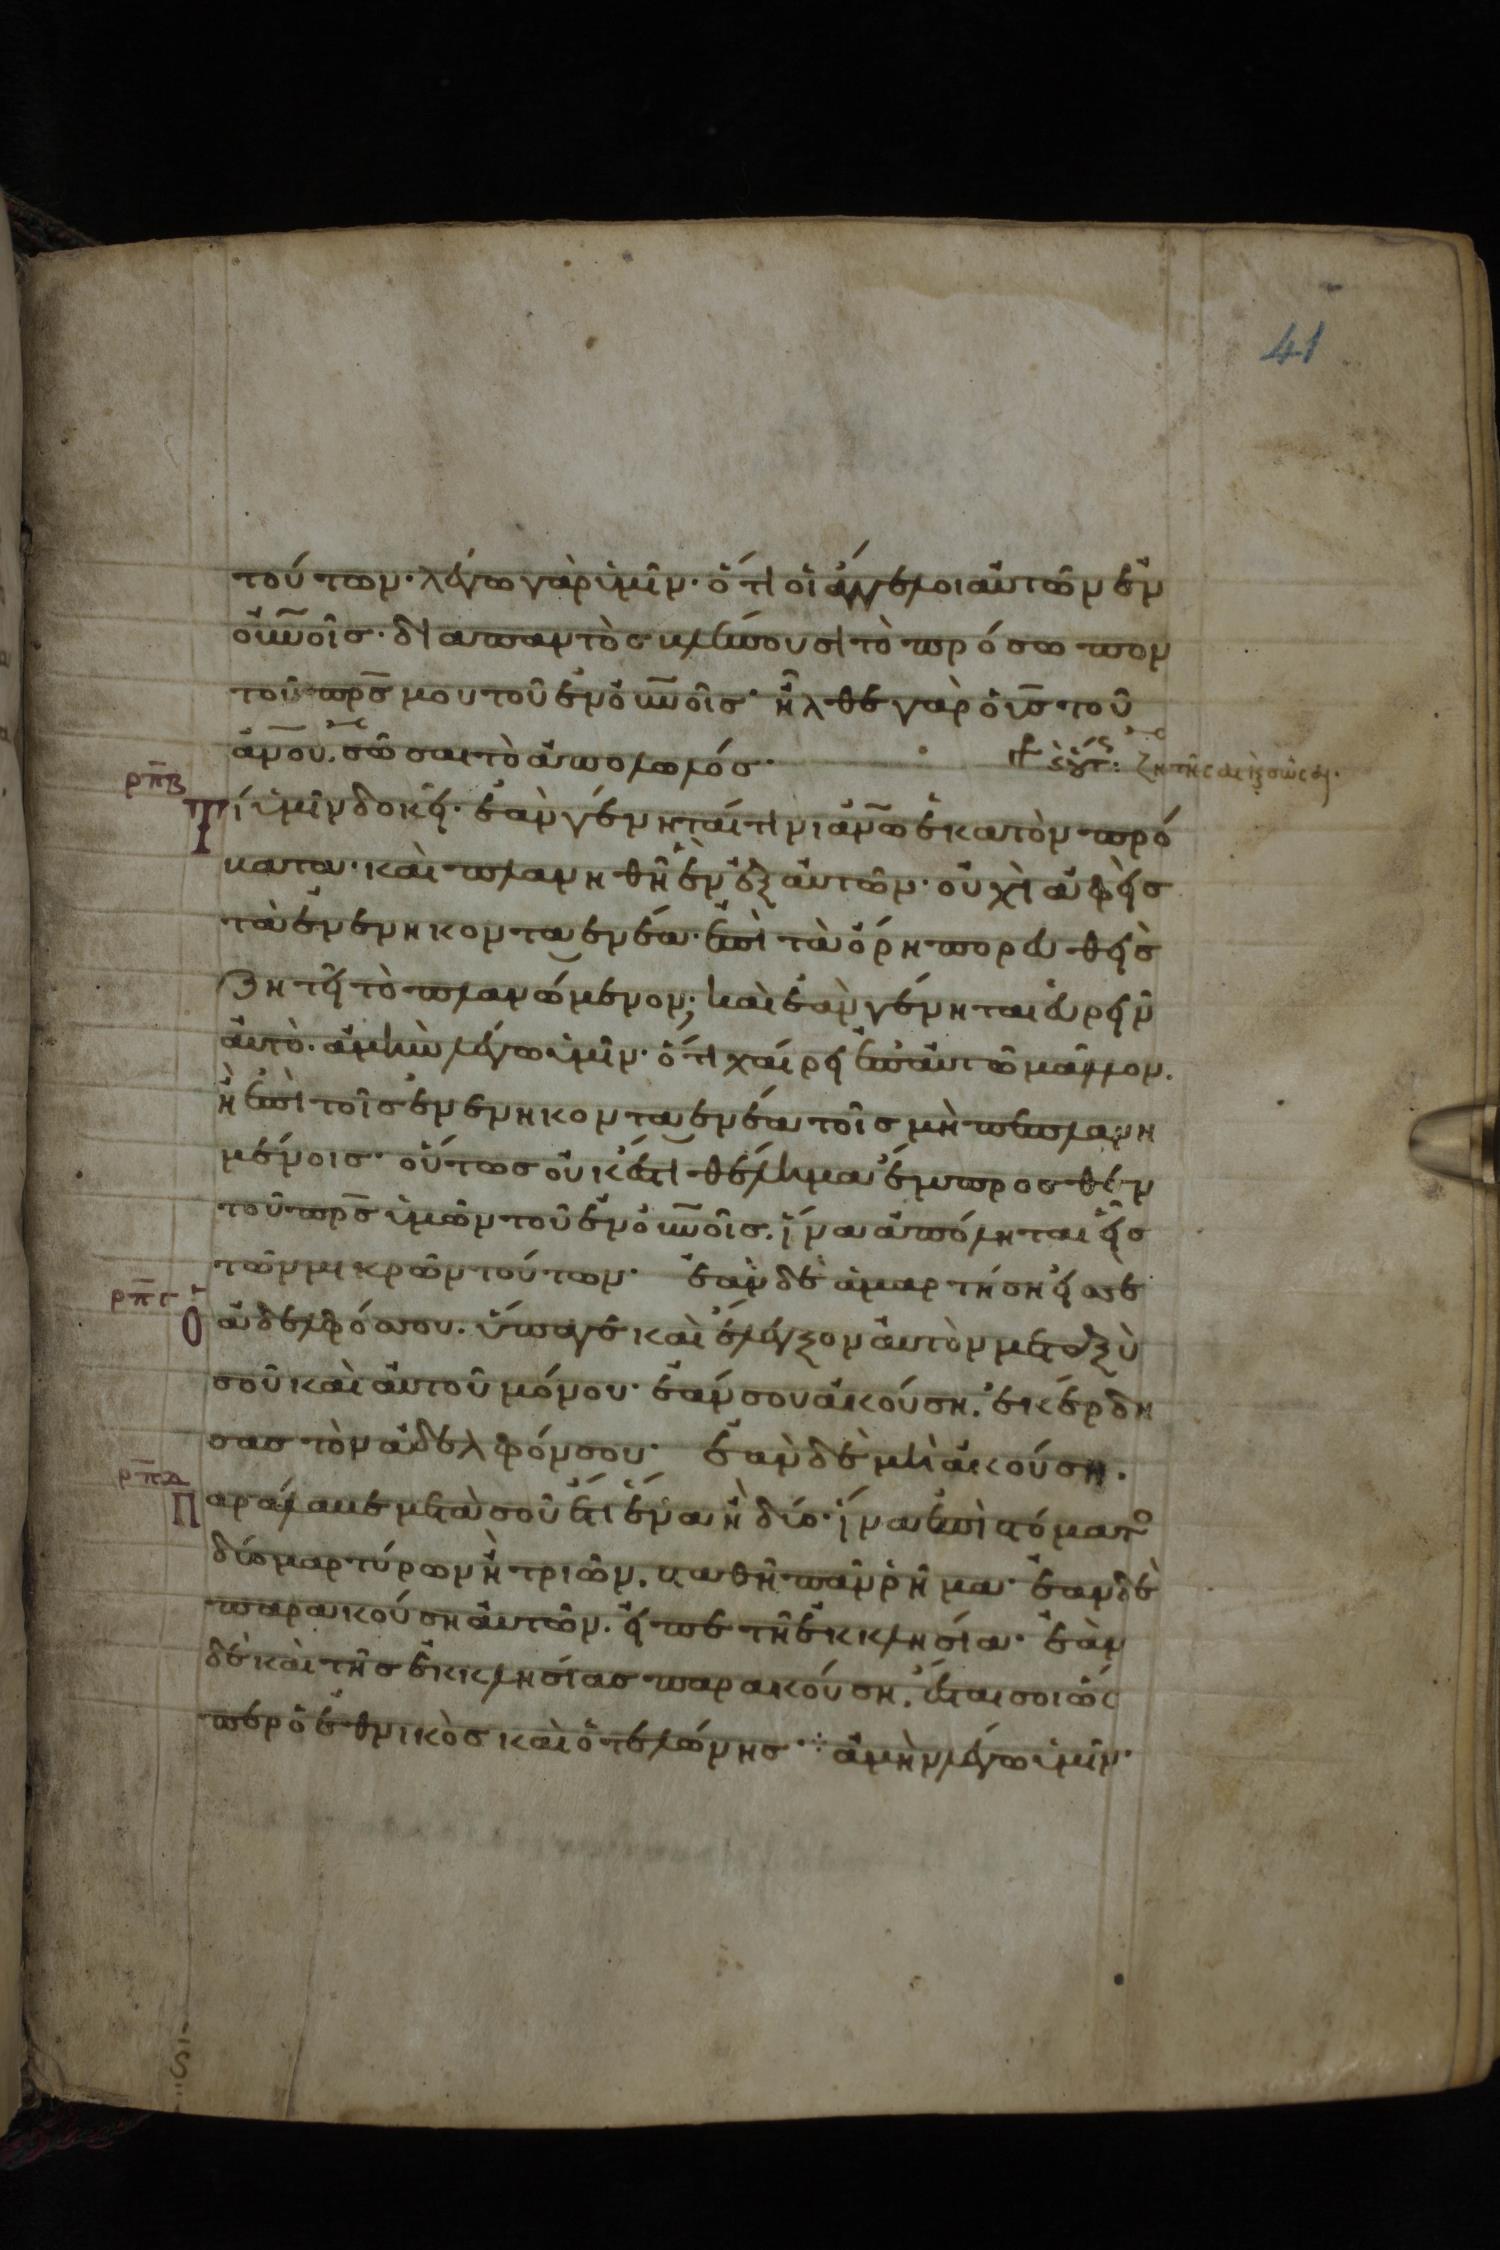 41
τούτων· λέγω γὰρ ὑμῖν· ὅτι οἱ ἄγγελοι αὐτῶν ἐν
οὐ̅ν̅οῖς· διαπαντὸς βλέπουσι τὸ πρόσωπον
τοῦ πρ̅ς̅ μου τοῦ ἐν οὐ̅ν̅οῖς· ἦλθε γὰρ ὁ υἱ̅ς̅ τοῦ
ἀν̅ου. σῶσαι τὸ ἀπολωλός·
ζητῆσαι κ(αὶ) σῶσαι·
ρπ̅β
Τί ὑμῖν δοκεῖ· ἐὰν γένηταί τινι ἀν̅ω ἑκατὸν πρό
βατα· καὶ πλανηθῆ ἓν ἐξ αὐτῶν· οὐχὶ ἀφεὶς
τὰ ἐνενηκονταεννέα· ἐπὶ τὰ ὄρη πορευθεὶς
ζητεῖ τὸ πλανώμενον; καὶ ἐὰν γένηται εὑρεῖν
αὐτὸ· ἀμὴν λέγω ὑμῖν· ὅτι χαίρει ἐπ' αὐτῶ μᾶλλον.
ἢ ἐπὶ τοῖς ἐνενηκονταεννέα τοῖς μὴ πεπλανη
μένοις· οὕτως οὐκ ἔστι θέλημα ἔμπροσθεν
τοῦ πρ̅ς̅ ὑμῶν τοῦ ἐν οὐ̅ν̅οῖς. ἵνα ἀπόληται εἷς
τῶν μικρῶν τούτων· ἐὰν δὲ ἁμαρτήση εἴς σε
ρπ̅γ
Ὁ ἀδελφός σου. ὕπαγε καὶ ἔλεγξον αὐτὸν μεταξὺ
σοῦ καὶ αὐτοῦ μόνου· ἐάν σου ἀκούση. ἐκέρδη
σας τὸν ἀδελφόν σου· ἐὰν δὲ μὴ ἀκούση.
ρπ̅δ
Παράλαβε μετὰ σοῦ ἔτι ἕνα ἢ δύο· ἵνα ἐπὶ στόματο
δύο μαρτύρων ἢ τριῶν. σταθῆ πᾶν ῥῆμα· ἐὰν δὲ
παρακούση αὐτῶν. εἰπὲ τῆ ἐκκλησία· ἐὰν
δὲ καὶ τῆς ἐκκλησίας παρακούση. ἔσται σοι ὥς
περ ὁ ἐθνικὸς καὶ ὁ τελώνης· ἀμὴν λέγω ὑμῖν·